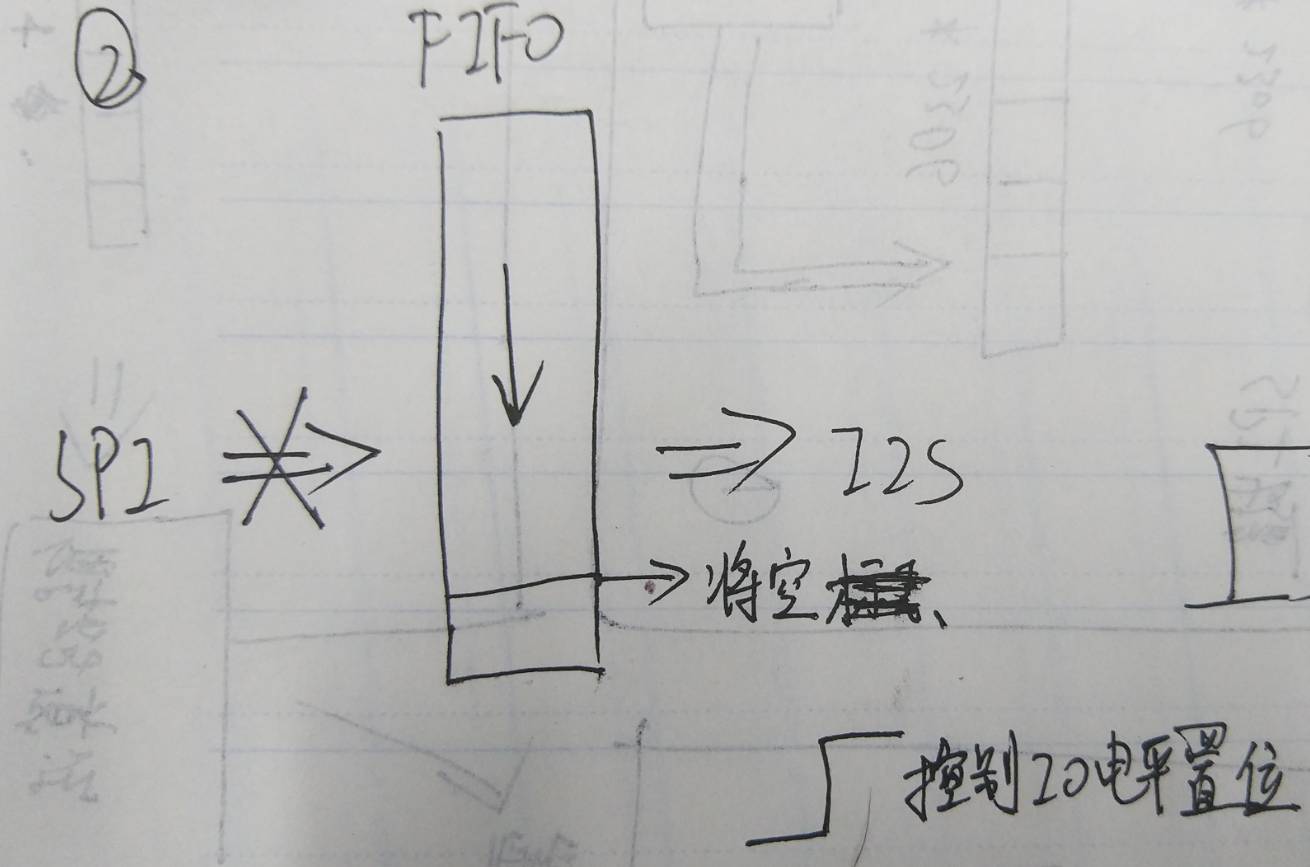 ② FIFO
SPI I2S
将空
控制IO电平置位